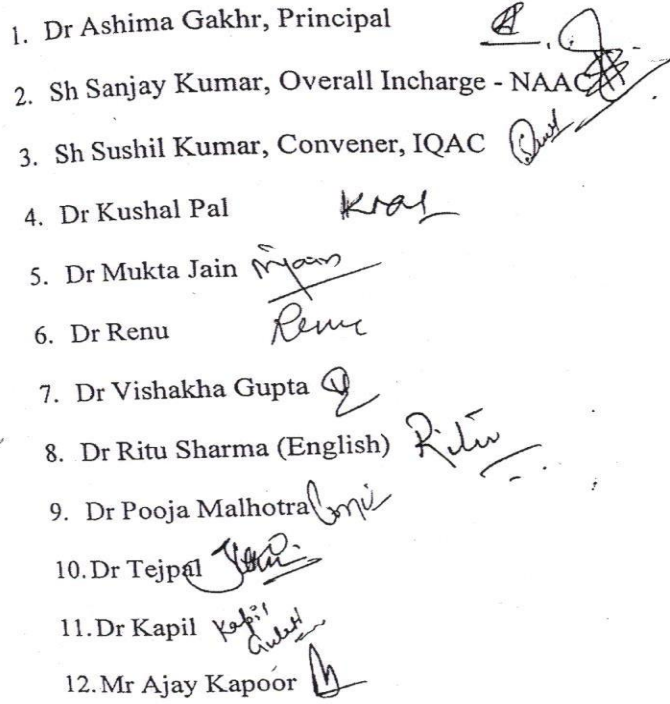 1. Dr Ashima Gakhr, Principal
2. Sh Sanjay Kumar, Overall Incharge - NAAC
3. Sh Sushil Kumar, Convener, IQAC
4. Dr Kushal Pal
5. Dr Mukta Jain Mjain
6. Dr Renu Renu
7. Dr Vishakha Gupta
8. Dr Ritu Sharma (English) Ritu
9. Dr Pooja Malhotra
10. Dr Tejpal
11. Dr Kapil Kapil
12. Mr Ajay Kapoor